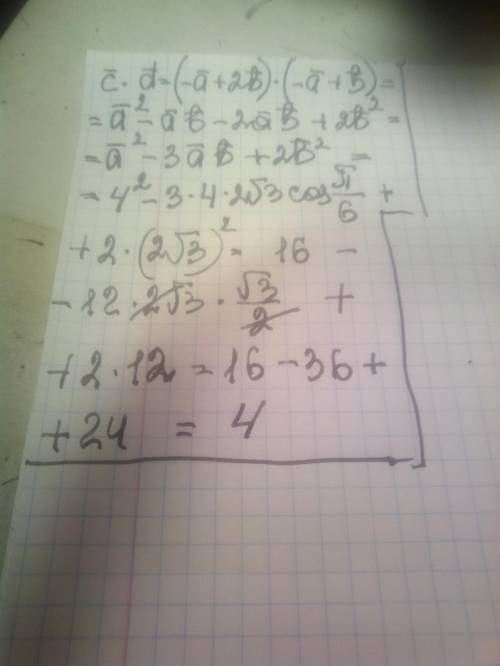 c̄ · d̄ = (-ā + 2b̄) · (-ā + b̄) =
= ā² - āb̄ - 2āb̄ + 2b̄² =
= ā² - 3āb̄ + 2b̄² =
= 4² - 3 · 4 · 2√3 cos π/6 +
+ 2 · (2√3)² = 16 -
- 12 · 2√3 · √3/2 +
+ 2 · 12 = 16 - 36 +
+ 24 = 4